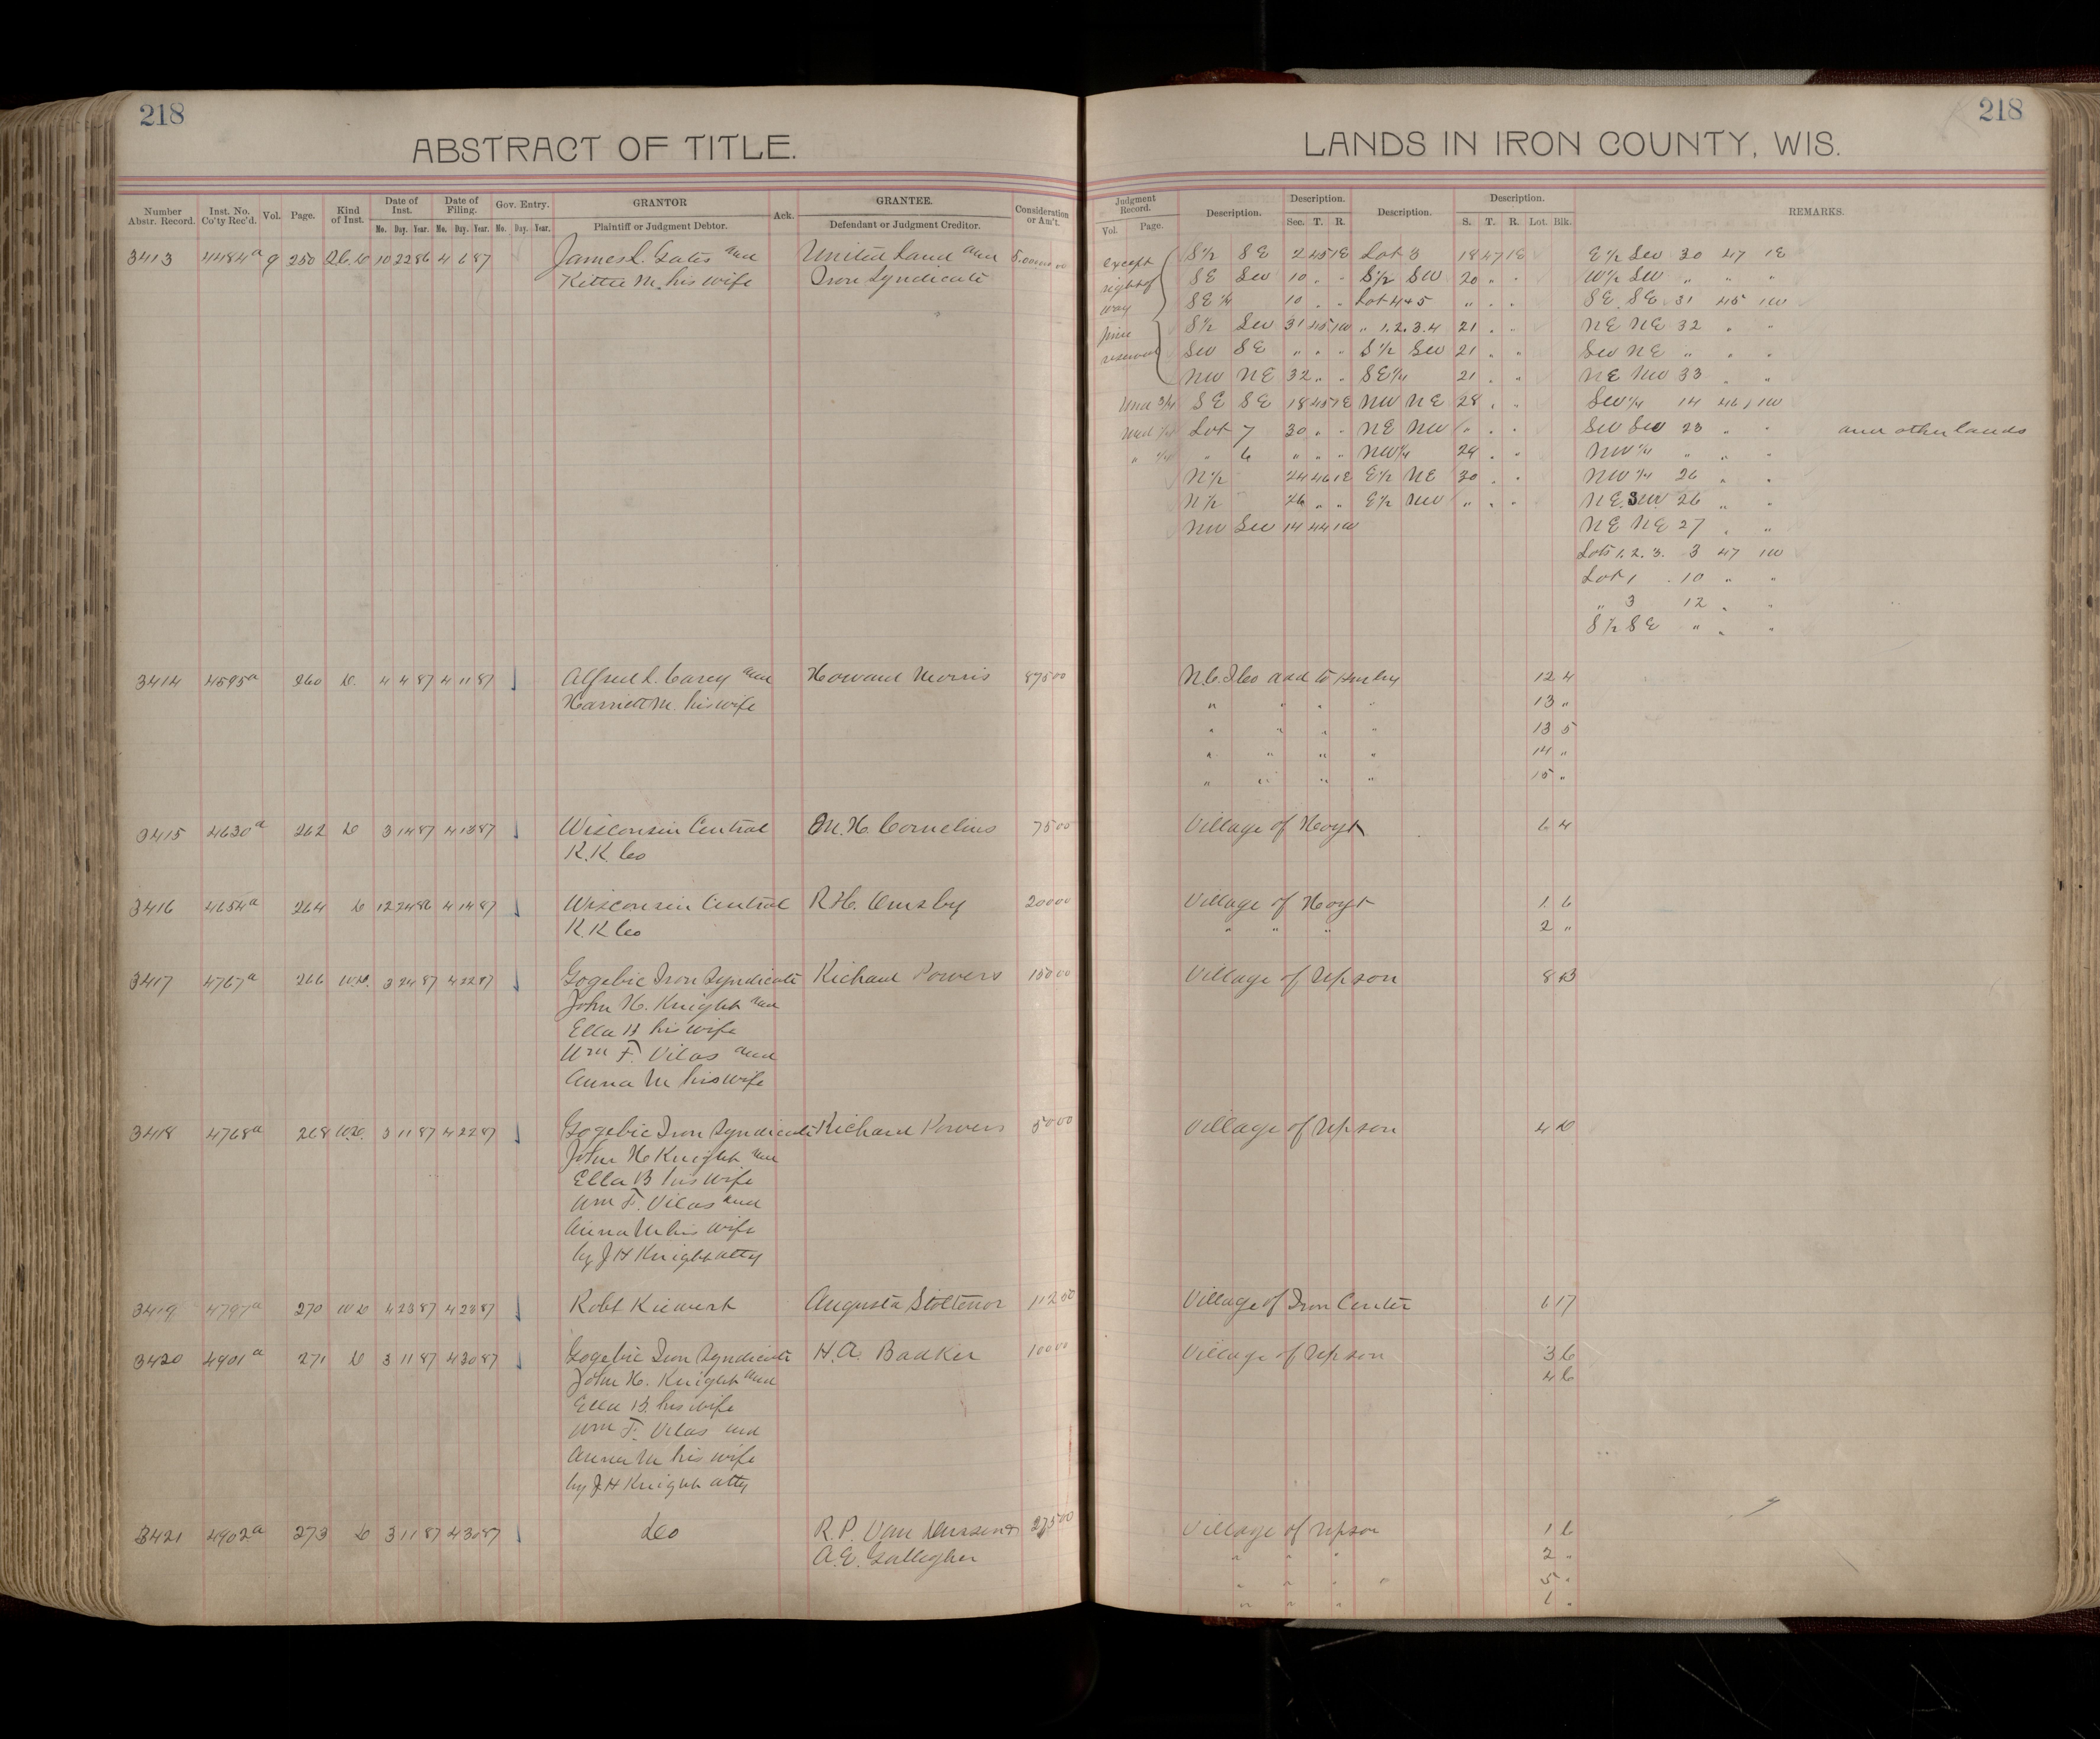 218
ABSTRACT OF TITLE.
Number Abstr. Record. Inst. No. Co'ty Rec'd. Vol. Page. Kind of Inst. Date of Inst. Date of Filing. Gov. Entry. GRANTOR Ack. GRANTEE. Consideration or Am't.
Mo. Day. Year. Mo. Day. Year. Mo. Day. Year. Plaintiff or Judgment Debtor. Defendant or Judgment Creditor.
3413 4484a 9 250 Q.C.D 10 22 86 4 6 87 James L. Gates and United Land and
Kittie M. his wife Iron Syndicate
3414 4595a 260 D. 4 4 87 4 11 87 Alfred L. Carey and Howard Morris 875 00
Harriet M. his wife
3415 4630a 262 D 3 14 87 4 13 87 Wisconsin Central M. H. Cornelius 75 00
R.R. Co
3416 4654a 264 D 12 24 86 4 14 87 Wisconsin Central R H. Ormsby 200 00
R.R Co
3417 4767a 266 W.D. 3 24 87 4 22 87 Gogebic Iron Syndicate Richard Powers 150 00
John H. Knight and
Ella B his wife
Wm F. Vilas and
Anna M his wife
3418 4768a 268 W.D. 3 11 87 4 22 87 Gogebic Iron Syndicate Richard Powers 50 00
John H Knight and
Ella B his wife
Wm F. Vilas and
Anna M his wife
by J H Knight atty
3419 4797a 270 W D 4 23 87 4 23 87 Robt Augusta 112 00
3420 4901a 271 D 3 11 87 4 30 87 Gogebic Iron Syndicate H. A. Badker 100 00
John H. Knight and
Ella B. his wife
Wm F. Vilas and
Anna M his wife
by J H Knight atty
3421 4902a 273 D 3 11 87 4 30 87 do R. P. Van 275 00
A. E. Gallagher
218
LANDS IN IRON COUNTY, WIS.
Judgment Record. Description. Description. Description. Description. REMARKS.
Vol. Page. Sec. T. R. S. T. R. Lot. Blk.
except S½ SE 2 45 1E Lot 3 18 47 1E E½ SW 30 47 1E
right of SE SW 10 " " S½ SW 20 " " W½ SW " " "
way SE¼ 10 " " Lot 4+5 " " " SE SE 31 45 1W
pine S½ SW 31 45 1W " 1.2.3.4 21 " " NE NE 32 " "
reserved SW SE " " " S½ SW 21 " " SW NE " " "
NW NE 32 " " SE¼ 21 " " NE NW 33 " "
Und ¾ SE SE 18 45 1E NW NE 28 " " SW¼ 14 46 1W
Und Lot 7 30 " " NE NW " " " SW SW 23 " " and other lands
" ¼ " 6 " " " NW¼ 29 " " NW¼ " " "
N½ 24 46 1E E½ NE 30 " " NW¼ 26 " "
N½ 26 " " E½ NW " " " NE SW 26 " "
NW SW 14 44 1W NE NE 27 " "
Lots 1. 2. 3. 3 47 1W
Lot 1 10 " "
" 3 12 " "
S½ SE " " "
N.C. I Co add to Hurley 12 4
" " " " 13 "
" " " " 13 5
" " " " 14 "
" " " " 15 "
Village of Hoyt 6 4
Village of Hoyt 1 6
" " " 2 "
Village of Upson 8 13
Village of Upson 4 10
Village of Iron Center 6 17
Village of Upson 3 6
4 6
Village of Upson 1 6
" " " 2 "
" " " " 5 "
" " " 1 "